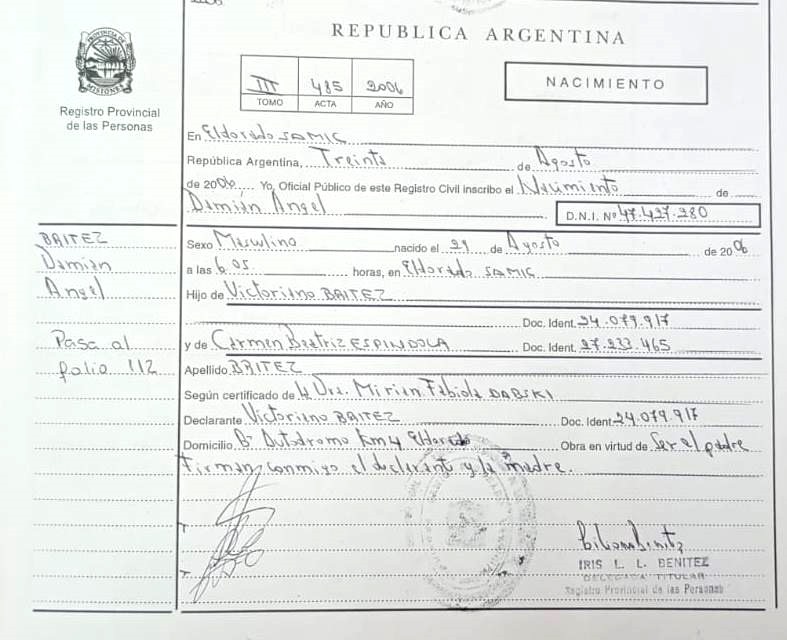 REPUBLICA ARGENTINA
PROVINCIA DE
MISIONES
Registro Provincial
de las Personas
III 485 2006
TOMO ACTA AÑO
NACIMIENTO
En Eldorado SAMIC
República Argentina, Treinta de Agosto
de 2006 Yo, Oficial Público de este Registro Civil inscribo el Nacimiento de
Damián Angel
D.N.I. Nº 47.427.280
BAITEZ
Damián
Angel
Pasa al
folio 112
Sexo Masculino nacido el 29 de Agosto de 2006
a las 6 05 horas, en Eldorado SAMIC
Hijo de Victoriano BAITEZ
Doc. Ident. 24.079.917
y de Carmen Beatriz ESPINDOLA Doc. Ident. 27.233.465
Apellido BAITEZ
Según certificado de la Dra. Mirian Fabiola DABSKI
Declarante Victoriano BAITEZ Doc. Ident. 24.079.917
Domicilio Bº Autodromo Km 4 Eldorado Obra en virtud de Ser el padre
Firman conmigo el declarante y la madre.
IRIS L. L. BENITEZ
DELEGADA TITULAR
Registro Provincial de las Personas